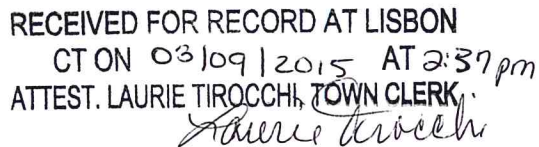 RECEIVED FOR RECORD AT LISBON
CT ON 03/09/2015 AT 2:37pm
ATTEST. LAURIE TIROCCHI, TOWN CLERK.
Laurie Tirocchi